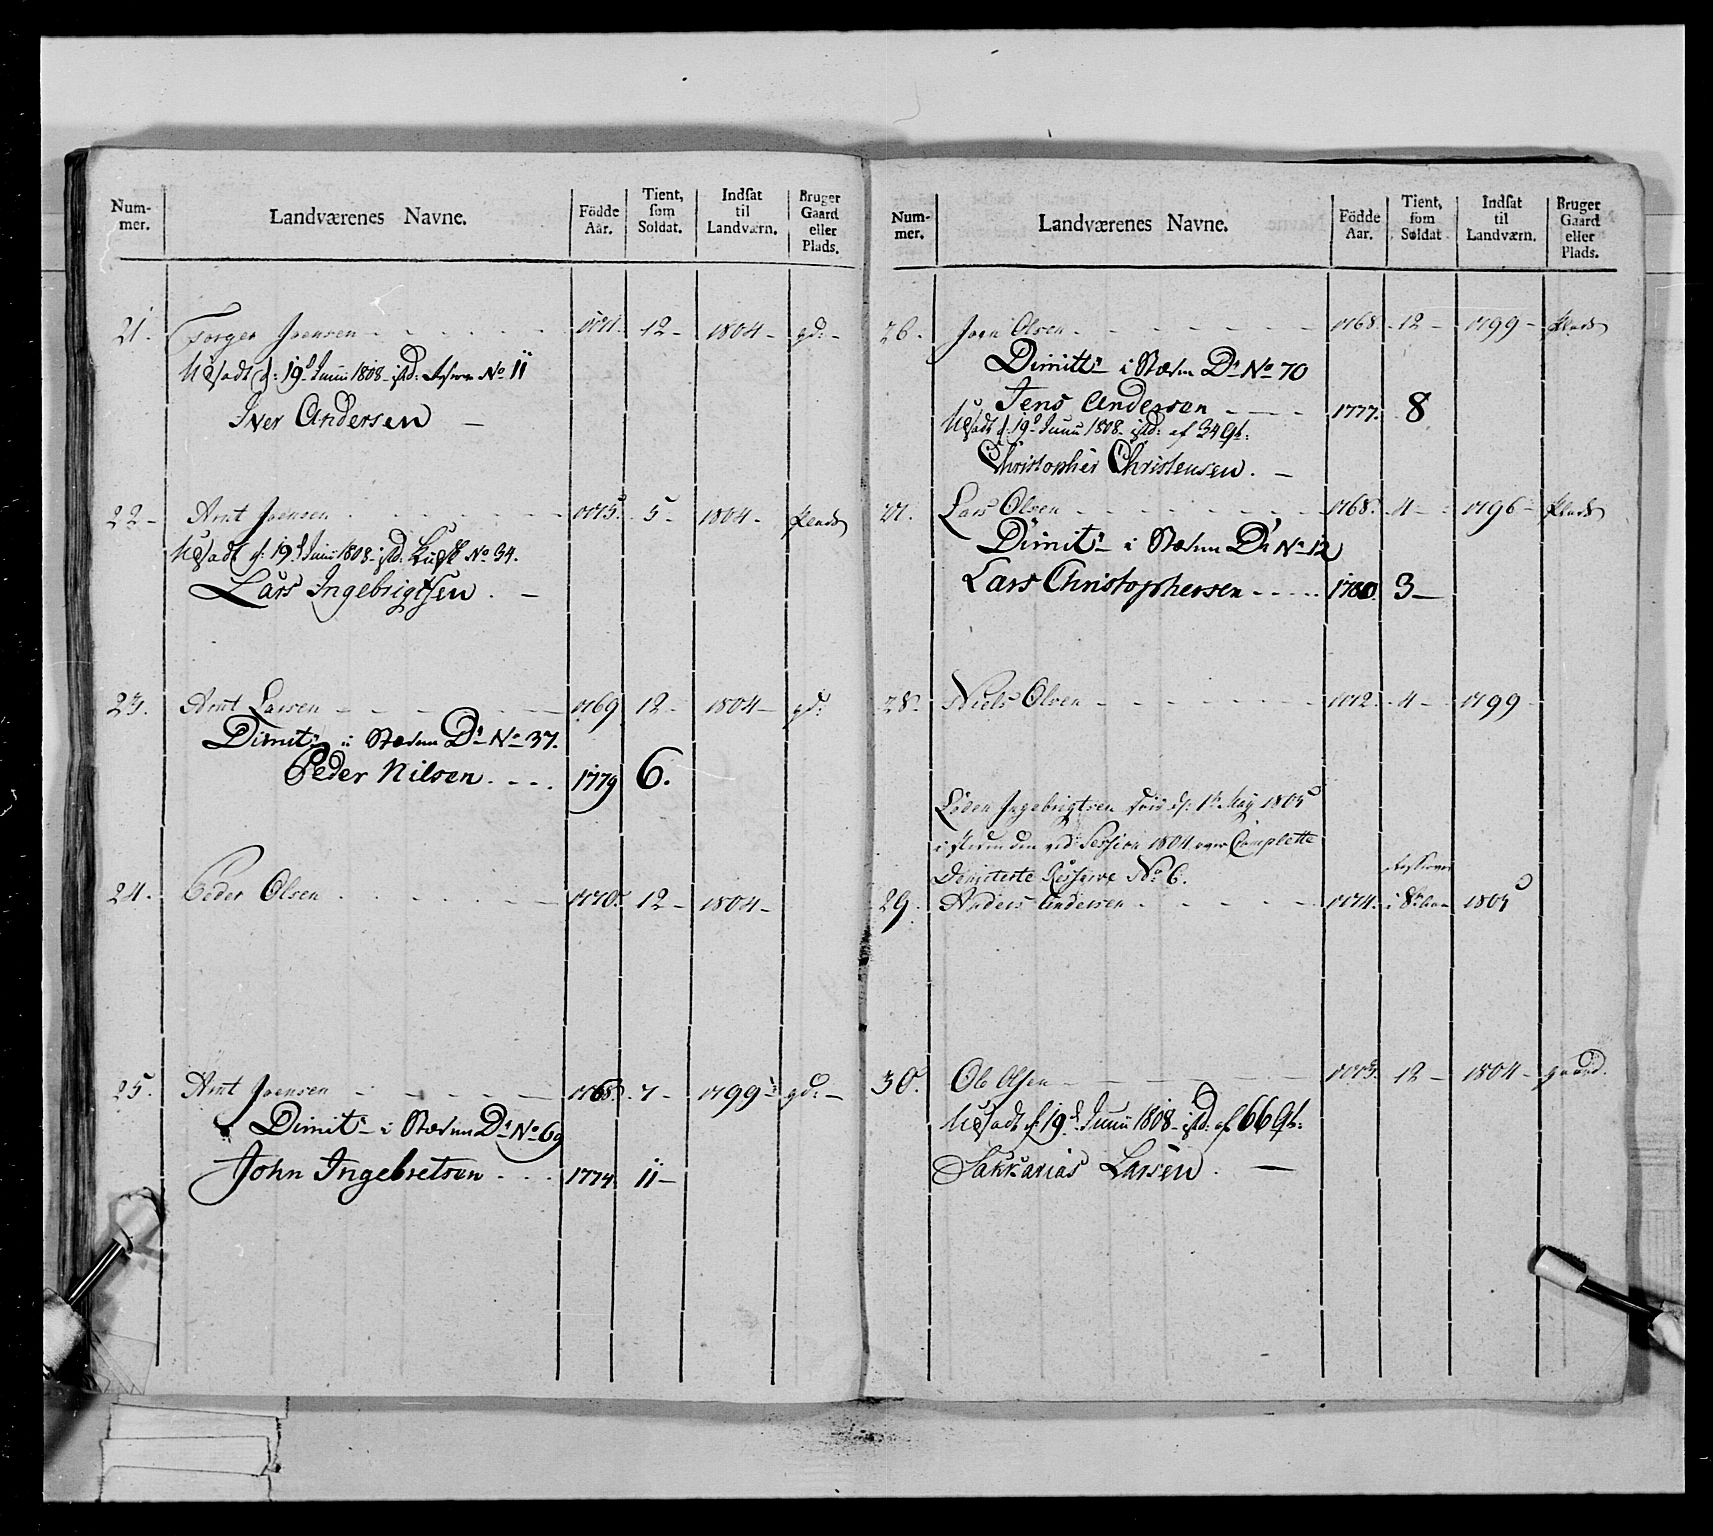 Num-
mer.
Landværenes Navne.
Födde
Aar.
Tient,
som
Soldat.
Indsat
til
Landværn.
Bruger
Gaard
eller
Plads.
21. Torger Joensen 1771. 12 - 1804 - gd: -
Udsadt d: 19d Junii 1808 istd: No 11
Iver Andersen -
22 - Arnt Joensen 1775. 5 - 1804 - Plads
Udsadt d: 19d Junii 1808 istd: No 34.
Lars Ingebrigtsen . -
23. Arnt Larsen 1769 12 - 1804 - gd:
Dimitt i Stæden No 37.
Peder Nilsen. 1779 6.
24. Peder Olsen 1770. 12 - 1804 -
25. Arnt Joensen 1768. 7 - 1799 gd: -
Dimitt i Stæden No 69
John Ingebretsen 1774 11 -
Num-
mer.
Landværenes Navne.
Födde
Aar.
Tient,
som
Soldat
Indsat
til
Landværn.
Bruger
Gaard
eller
Plads.
26. Joen Olsen 1768. 12 - 1799 - Plads
Dimitt i Stæden No 70
Jens Andersen 1777. 8
Udsadt d: 19d Junii 1808 istd: af 34
Christopher Christensen. -
27. Lars Olsen 1768. 4 - 1796 - Plads
Dimitt i Stæden No 12
Lars Christophersen 3 -
28. Niels Olsen 1772. 4 - 1799 -
Ingebrigtsen d: 1te May 1805
i steden den ved Session 1804 over Complette
Dimiterte Reserve No 6.
29. Anders Andersen 1774. i 8 1805
30. Ole Olsen 1773. 12 - 1804 - gaard.
Udsadt d: 19d Junii 1808 istd: af 66
Sakkarias Larsen . -